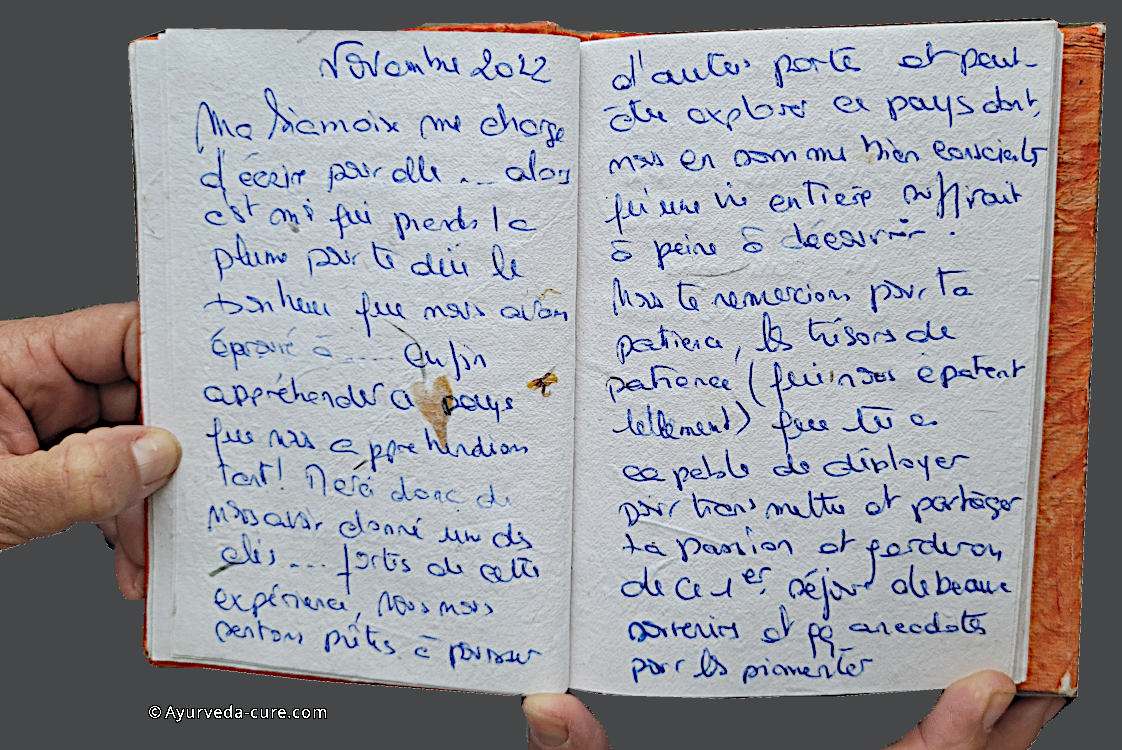 Novembre 2022
Ma siamoise me charge
d'écrire pour elle ... alors
c'est moi qui prends la
plume pour te dire le
bonheur que nous avons
éprouvé à .... enfin
appréhender ce pays
que nous appréhendions
tant! Merci donc de
nous avoir donné une des
clés ... fortes de cette
expérience, nous nous
sentons prêtes à pousser
d'autres portes et peut-
être explorer ce pays dont,
nous en sommes bien conscients
qu'une vie entière suffirait
à peine à découvrir.
Nous te remercions pour ta
patience, les trésors de
patience (qui nous épatent
tellement) que tu es
capable de déployer
pour transmettre et partager
ta passion et garderons
de ce 1er séjour de beaux
souvenirs et qq anecdotes
pour les pimenter
© Ayurveda-cure.com